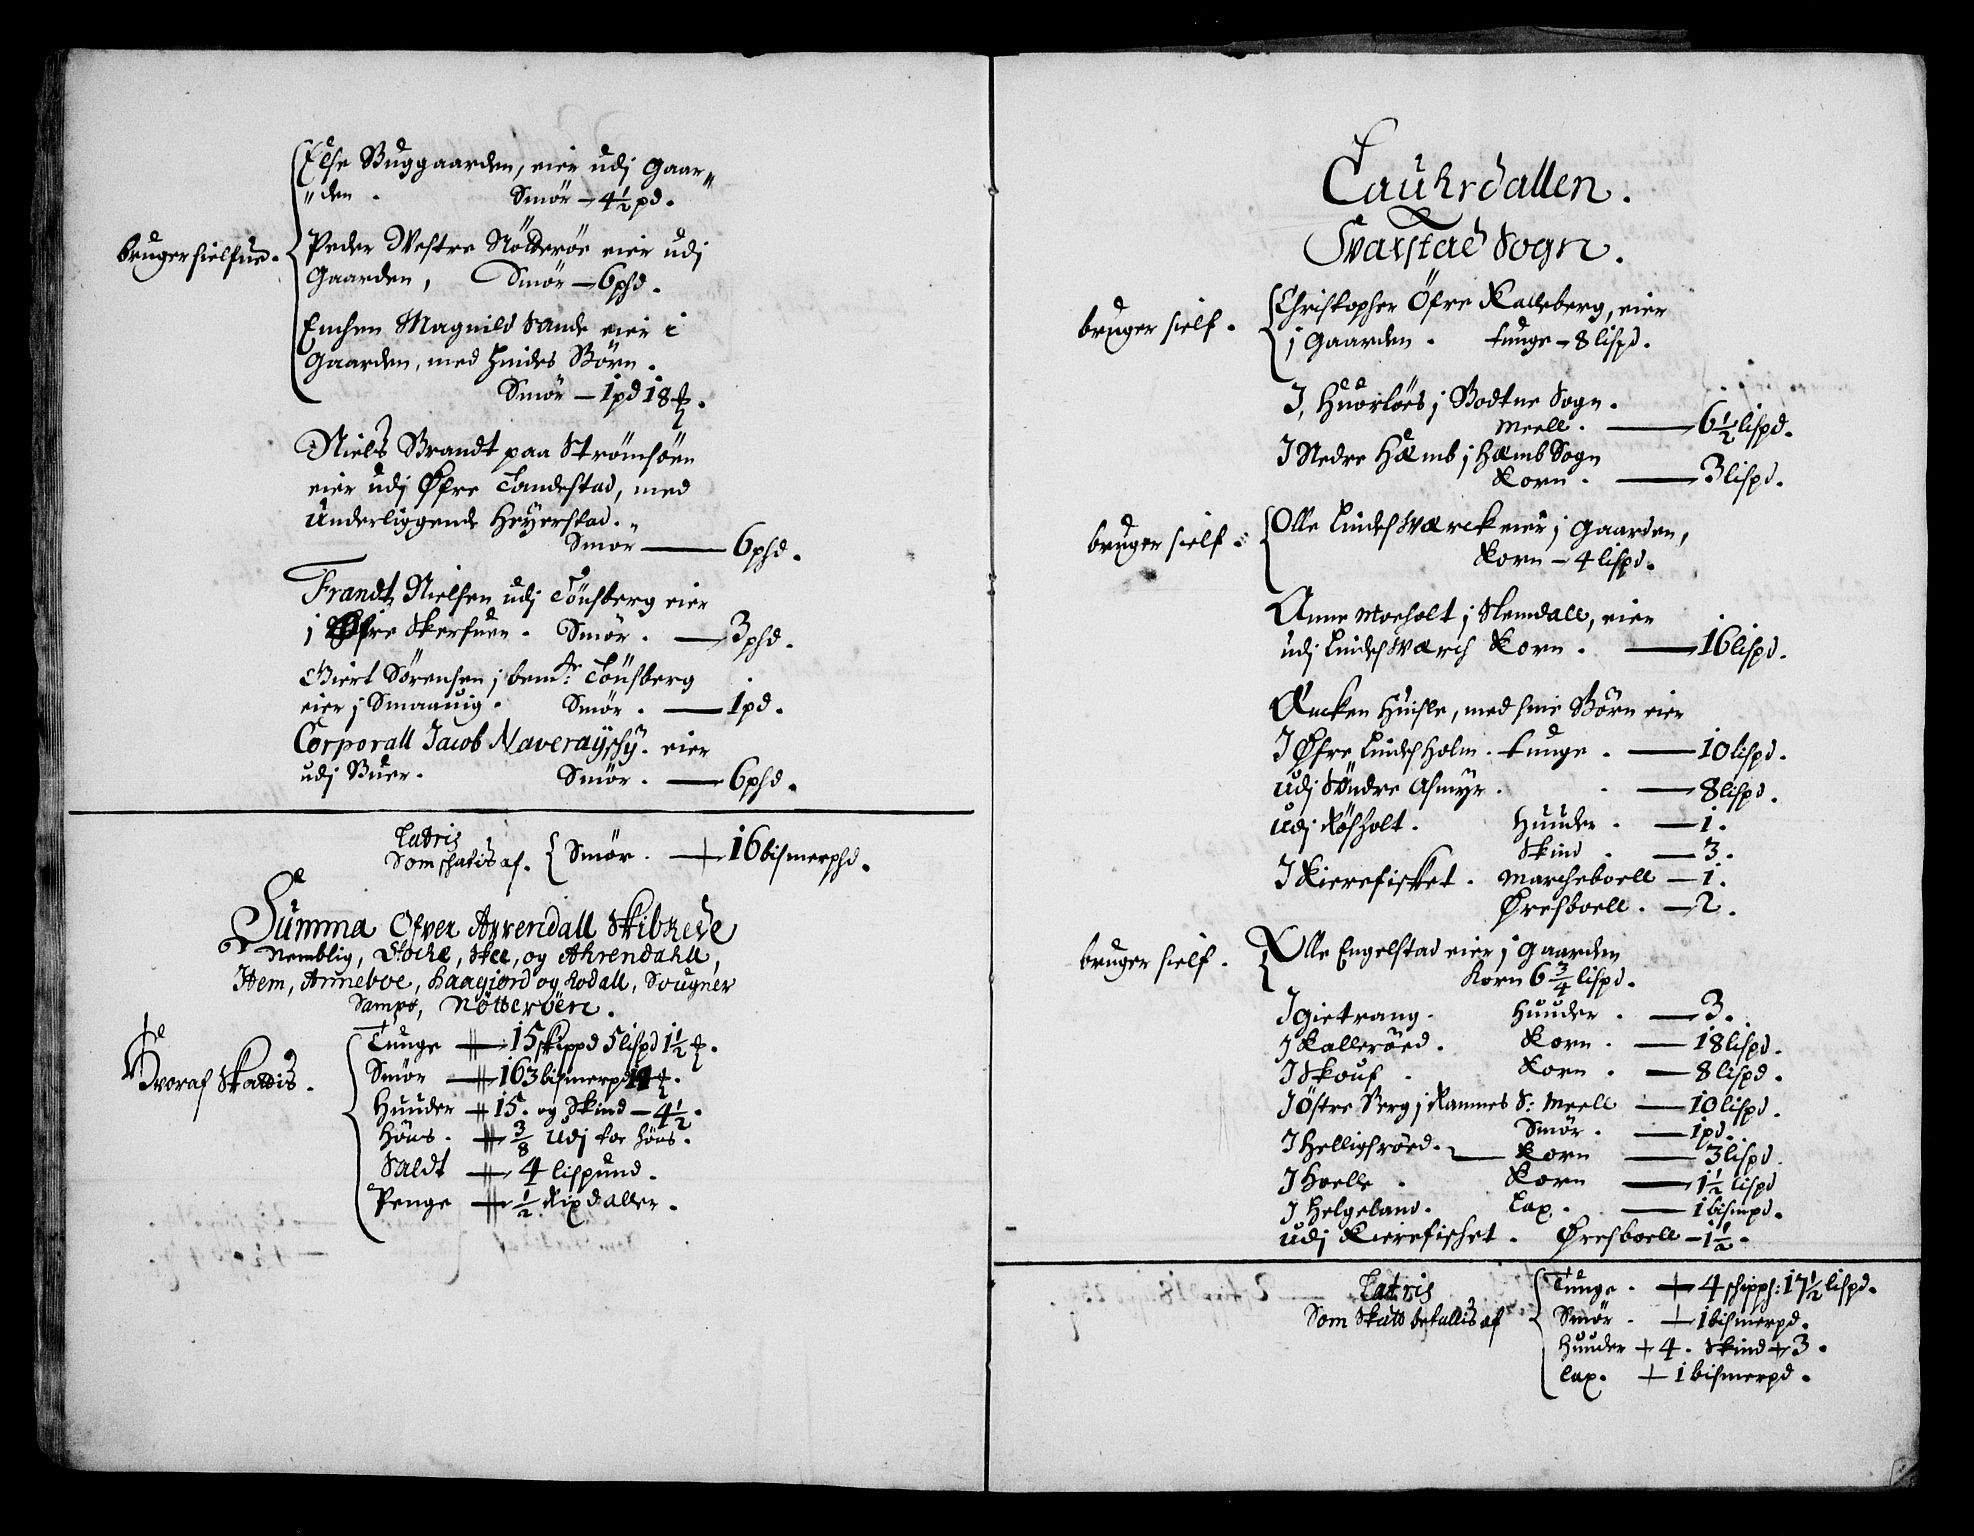 Else Buggaarden, eier udj Gaar-
"den. Smör - 4½ pd.
bruger sielfue.
Peder Westre Nötteröe eier udj
Gaarden, Smör - 6 pd.
Enchen Magnild Sande eier i
Gaarden, med hindes Börn.
Smör - 1 pd 18
Niels Brandt paa Strömsöen
eier udj Öfre Tandestad, med
Underliggende Heyerstad.
Smör — 6 pd.
Frandtz Nielsen udj Tönsberg eier
j Öfre Skersuen. Smör. — 3 pd.
Giert Sörensen j bemte: Tönsberg
eier j Smaauig. Smör. — 1 pd.
Corporall Jacob Naverayschy. eier
udj Buer. Smör. — 6 pd.
Latris
Som schatis af. Smör. — 16 bismerpd.
Summa Ofver Arrendall Skibrede
Nemblig, Stoche, Skee, og Ahrendahll,
Hem, Anneboe, Haagjord og Rodall, Sougner
Sampt, Nötteröen.
Hvoraf Skattis.
Tunge — 15 skippd 5 lispd 1½
Smör — 163 bismerpd
Huuder — 15. og Skind — 4½.
Höns. — 3/8 udj toe höns.
Saldt — 4 lispund.
Penge — ½ Rixdaller.
Lauhrdallen.
Svarstad Sogn.
bruger sielf.
Christopher Öfre Kalleberg, eier
j Gaarden. tunge - 8 lispd.
J, Huorloes j Bodtne Sogn.
Meell. — 6½ lispd.
J Nedre Hæmb j Hæmb Sogn
Korn. — 3 lispd.
bruger sielf.
Olle Lindeswærck eier j Gaarden,
Korn - 4 lispd.
Anne Moeholt j Slemdall, eier
udj Lindeswærch Korn. — 16 lispd.
Encken Huisle, med sine Börn eier
J Öfre Lindesholm. tunge. — 10 lispd.
udj Söndre Asmyr. — 8 lispd.
udj Rösholt. Huuder. — 1.
Skind. — 3.
J Kierrefisket. Marcheboell — 1.
Øresboell. — 2.
bruger sielf.
Olle Engelstad eier j Gaarden
Korn 6¾ lispd.
J Gietrang. Huuder. — 3.
J Kalleröed. Korn. — 18 lispd.
J Skouf. Korn. — 8 lispd.
J Östre Berg j Ramnes S: Meell — 10 lispd.
Smör. — 1 pd.
J Helligsröed. — Korn — 3 lispd
J Hvelle. Korn — 1½ lispd
J Helgeland. Lax. — 1 bismpd.
udj Kierrefischet. Øresboell - 1½.
Latris
Som Skatt betallis af
Tunge. — 4 schippd: 17½ lispd.
Smör. — 1 bismerpd.
Huuder — 4. Skind — 3.
Lax. — 1 bismerpd.